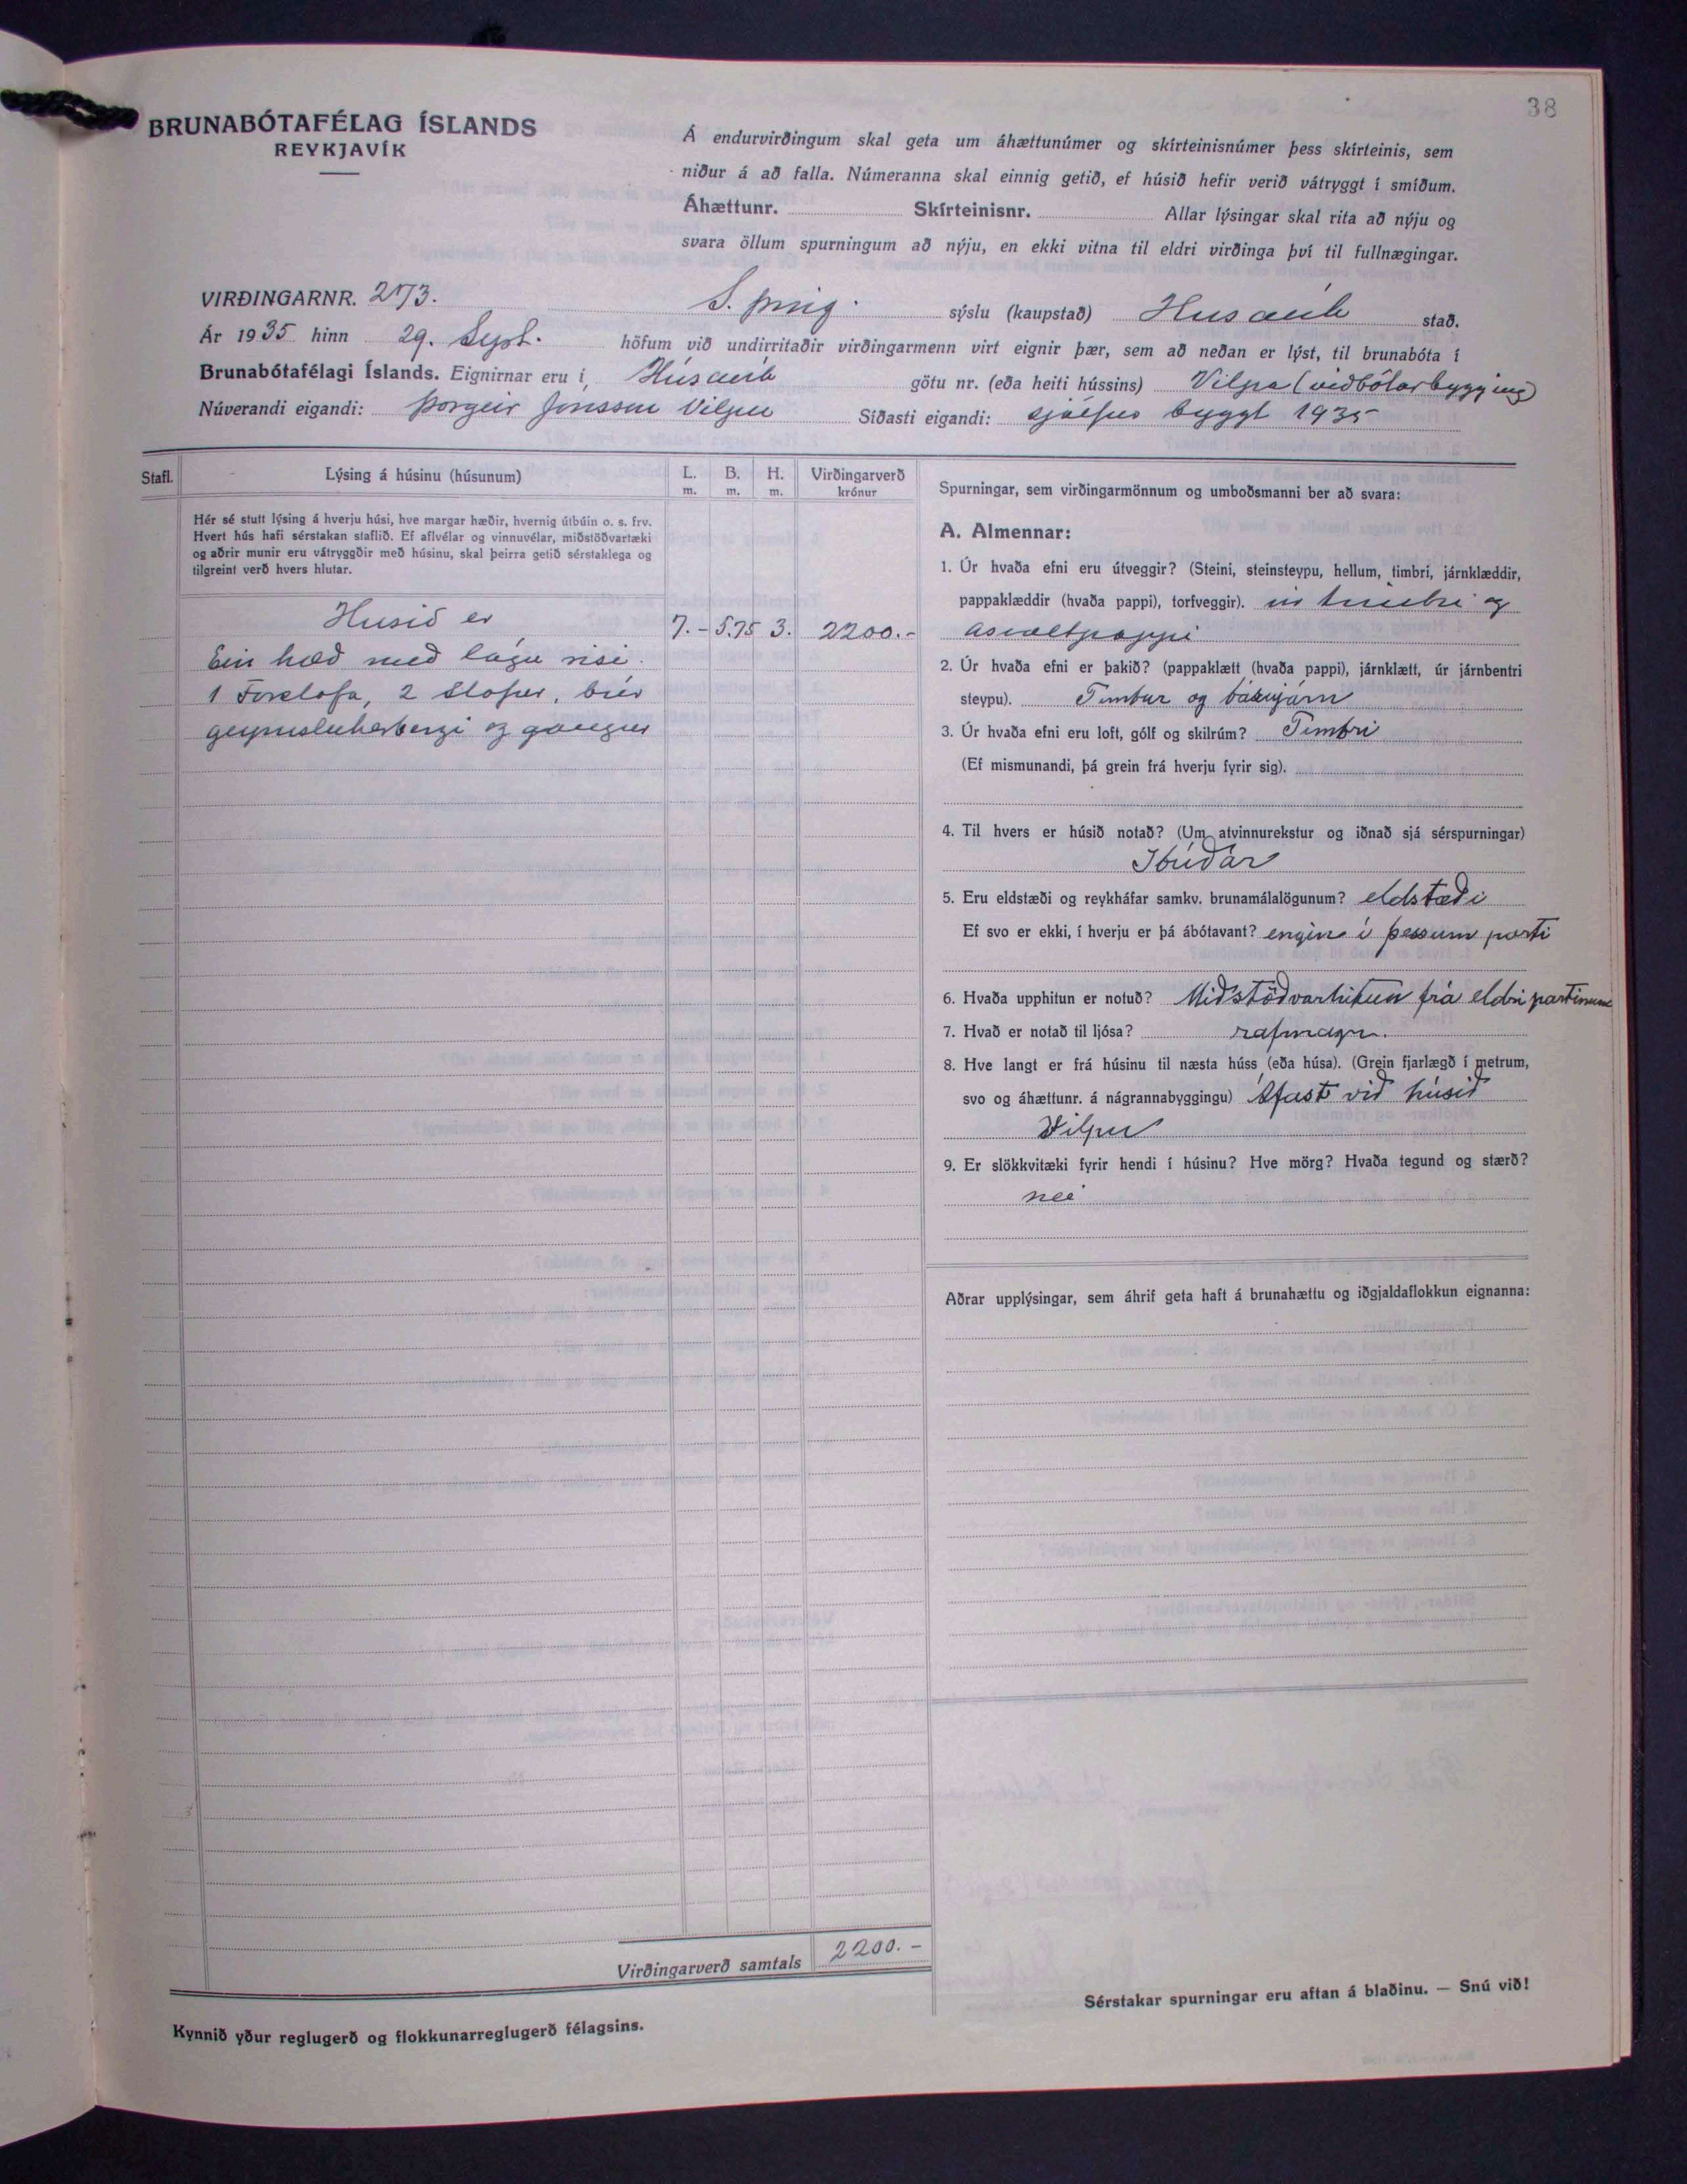 38
BRUNABÓTAFÉLAG ÍSLANDS
REYKJAVÍK
Á endurvirðingum skal geta um áhættunúmer og skírteinisnúmer þess skírteinis, sem
niður á að falla. Númeranna skal einnig getið, ef húsið hefir verið vátryggt í smíðum.
Áhættunr. Skírteinisnr. Allar lýsingar skal rita að nýju og
svara öllum spurningum að nýju, en ekki vitna til eldri virðinga því til fullnægingar.
VIRÐINGARNR. 273. S. þing. sýslu (kaupstað) Husavík stað.
Ár 1935 hinn 29. Sept. höfum við undirritaðir virðingarmenn virt eignir þær, sem að neðan er lýst, til brunabóta í
Brunabótafélagi Íslands. Eignirnar eru í Húsavík götu nr. (eða heiti hússins) Vilpa (viðbótarbygging)
Núverandi eigandi: Þorgeir Jónsson Vilpu Síðasti eigandi: sjálfur byggt 1935
Stafl. Lýsing á húsinu (húsunum) L. m. B. m. H. m. Virðingarverð krónur
Hér sé stutt lýsing á hverju húsi, hve margar hæðir, hvernig útbúin o. s. frv.
Hvert hús hafi sérstakan staflið. Ef aflvélar og vinnuvélar, miðstöðvartæki
og aðrir munir eru vátryggðir með húsinu, skal þeirra getið sérstaklega og
tilgreint verð hvers hlutar.
Husið er 7.- 5.75 3. 2200.-
Ein hæð með lágu risi.
1 Forstofa, 2 stofur, búr
geymsluherbergi og gangur
Virðingarverð samtals 2200.-
Kynnið yður reglugerð og flokkunarreglugerð félagsins.
Spurningar, sem virðingarmönnum og umboðsmanni ber að svara:
A. Almennar:
1. Úr hvaða efni eru útveggir? (Steini, steinsteypu, hellum, timbri, járnklæddir,
pappaklæddir (hvaða pappi), torfveggir). úr timbri og
asvaltpappi
2. Úr hvaða efni er þakið? (pappaklætt (hvaða pappi), járnklætt, úr járnbentri
steypu). Timbur og bárujárn
3. Úr hvaða efni eru loft, gólf og skilrúm? Timbri
(Ef mismunandi, þá grein frá hverju fyrir sig).
4. Til hvers er húsið notað? (Um atvinnurekstur og iðnað sjá sérspurningar)
Ibúðar
5. Eru eldstæði og reykháfar samkv. brunamálalögunum? eldstæði
Ef svo er ekki, í hverju er þá ábótavant? engin í þessum parti
6. Hvaða upphitun er notuð? Miðstöðvarhitun frá eldri partinum
7. Hvað er notað til ljósa? rafmagn.
8. Hve langt er frá húsinu til næsta húss (eða húsa). (Grein fjarlægð í metrum,
svo og áhættunr. á nágrannabyggingu) Áfast við húsið
Vilpu
9. Er slökkvitæki fyrir hendi í húsinu? Hve mörg? Hvaða tegund og stærð?
nei
Aðrar upplýsingar, sem áhrif geta haft á brunahættu og iðgjaldaflokkun eignanna:
Sérstakar spurningar eru aftan á blaðinu. — Snú við!